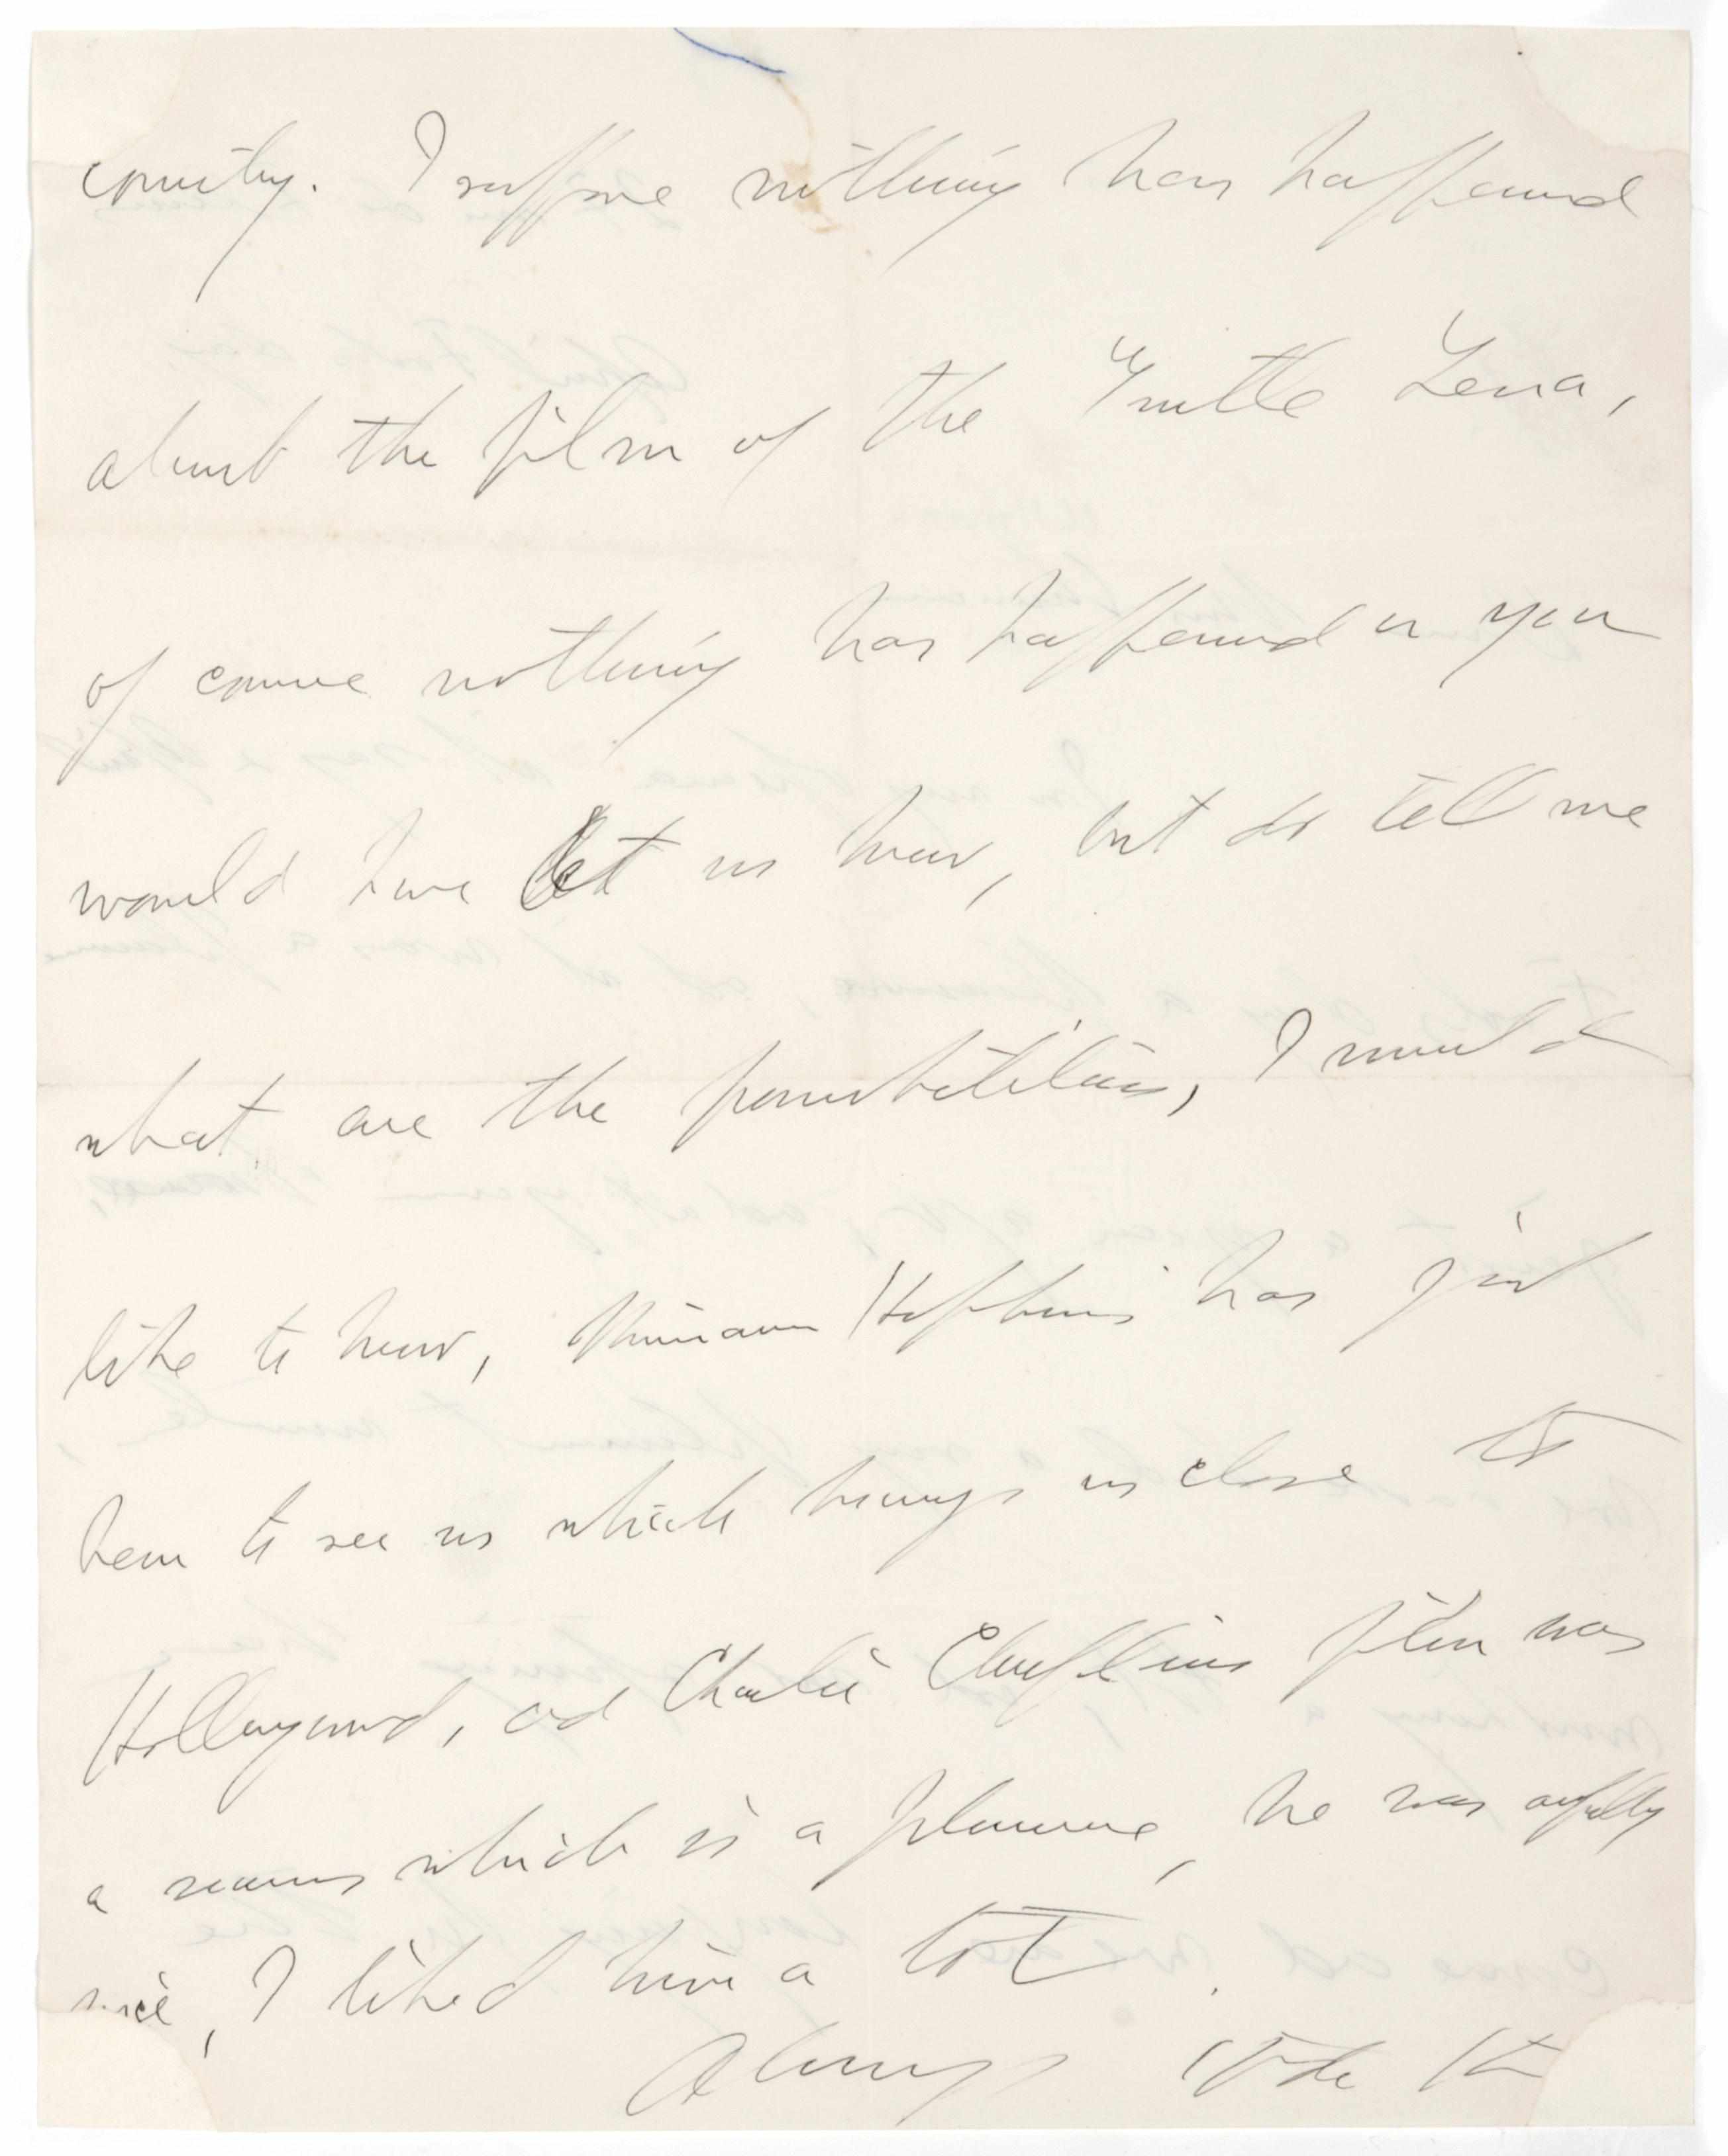 country. I suppose nothing has happened
about the film of the Gentle Lena,
of course nothing has happened or you
would have let us know, but do tell me
what are the possibilities, I would
like to know, Miriam Hopkins has just
been to see us which brings us close to
Hollywood, and Charlie Chaplins film was
a success which is a pleasure, he was awfully
nice, I liked him a lot.
Always